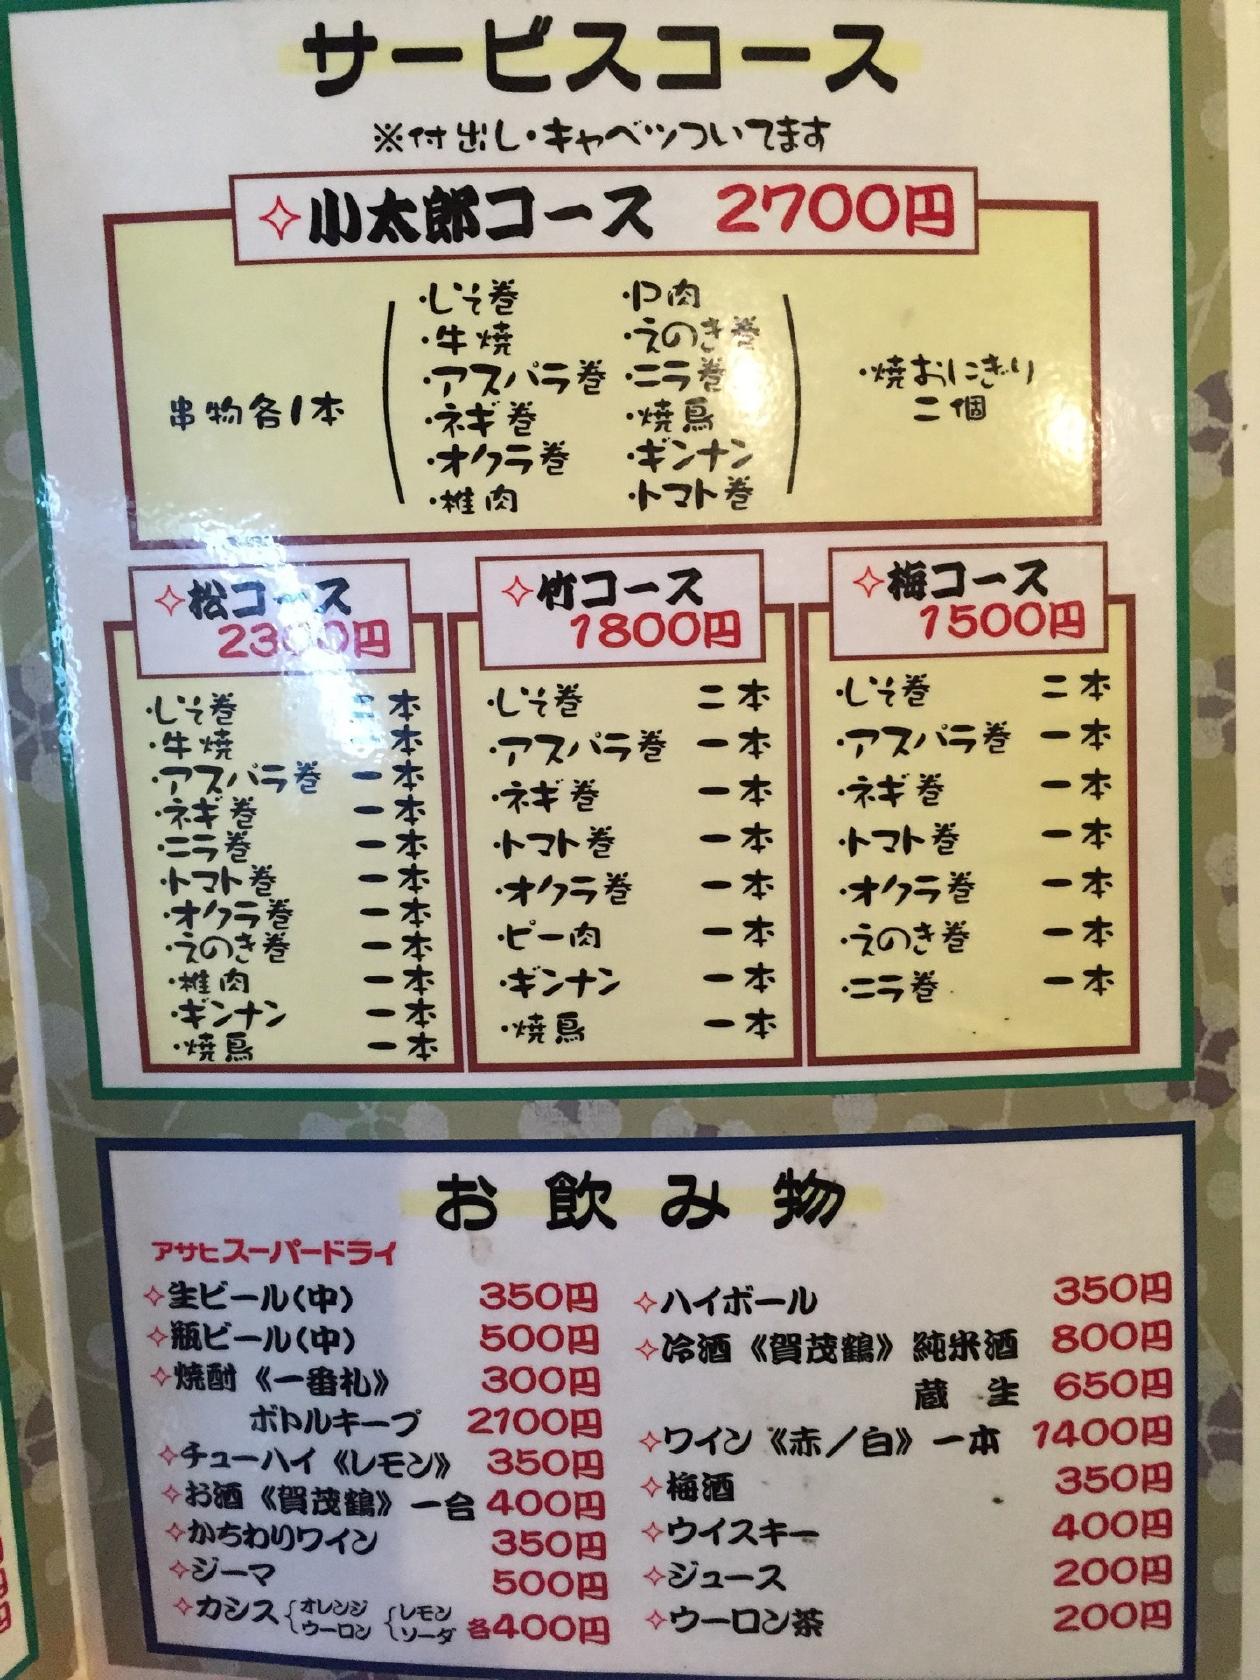 サービスコース
※付出し・キャベツついてます
小太郎コース 2700円
串物各1本
・しそ巻 ・P肉
・牛焼 ・えのき巻
・アスパラ巻 ・ニラ巻
・ネギ巻 ・焼鳥
・オクラ巻 ・ギンナン
・椎肉 ・トマト巻
・焼おにぎり
二個
松コース
2300円
・しそ巻 二本
・牛焼 一本
・アスパラ巻 一本
・ネギ巻 一本
・ニラ巻 一本
・トマト巻 一本
・オクラ巻 一本
・えのき巻 一本
・椎肉 一本
・ギンナン 一本
・焼鳥 一本
竹コース
1800円
・しそ巻 二本
・アスパラ巻 一本
・ネギ巻 一本
・トマト巻 一本
・オクラ巻 一本
・ピー肉 一本
・ギンナン 一本
・焼鳥 一本
梅コース
1500円
・しそ巻 二本
・アスパラ巻 一本
・ネギ巻 一本
・トマト巻 一本
・オクラ巻 一本
・えのき巻 一本
・ニラ巻 一本
お飲み物
アサヒスーパードライ
生ビール(中) 350円
瓶ビール(中) 500円
焼酎《一番札》 300円
ボトルキープ 2100円
チューハイ《レモン》 350円
お酒《賀茂鶴》一合 400円
かちわりワイン 350円
ジーマ 500円
カシス{オレンジ ウーロン {レモン ソーダ 各400円
ハイボール 350円
冷酒《賀茂鶴》 純米酒 800円
蔵 生 650円
ワイン《赤/白》一本 1400円
梅酒 350円
ウイスキー 400円
ジュース 200円
ウーロン茶 200円